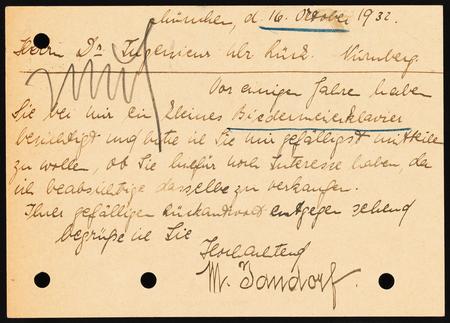 München, d. 16. October 1932.
Herrn Dr. Ingenieur Ulr. Rück. Nürnberg.
Vor einigen Jahre haben
Sie bei mir ein kleines Biedermeierklavier
besichtigt und bitte ich Sie mir gefälligst mitteilen
zu wollen, ob Sie hiefür noch Interesse haben, da
ich beabsichtige dasselbe zu verkaufen.
Ihrer gefälligen Rückantwort entgegen sehend
begrüße ich Sie
Hochachtend
M. Jandorf.